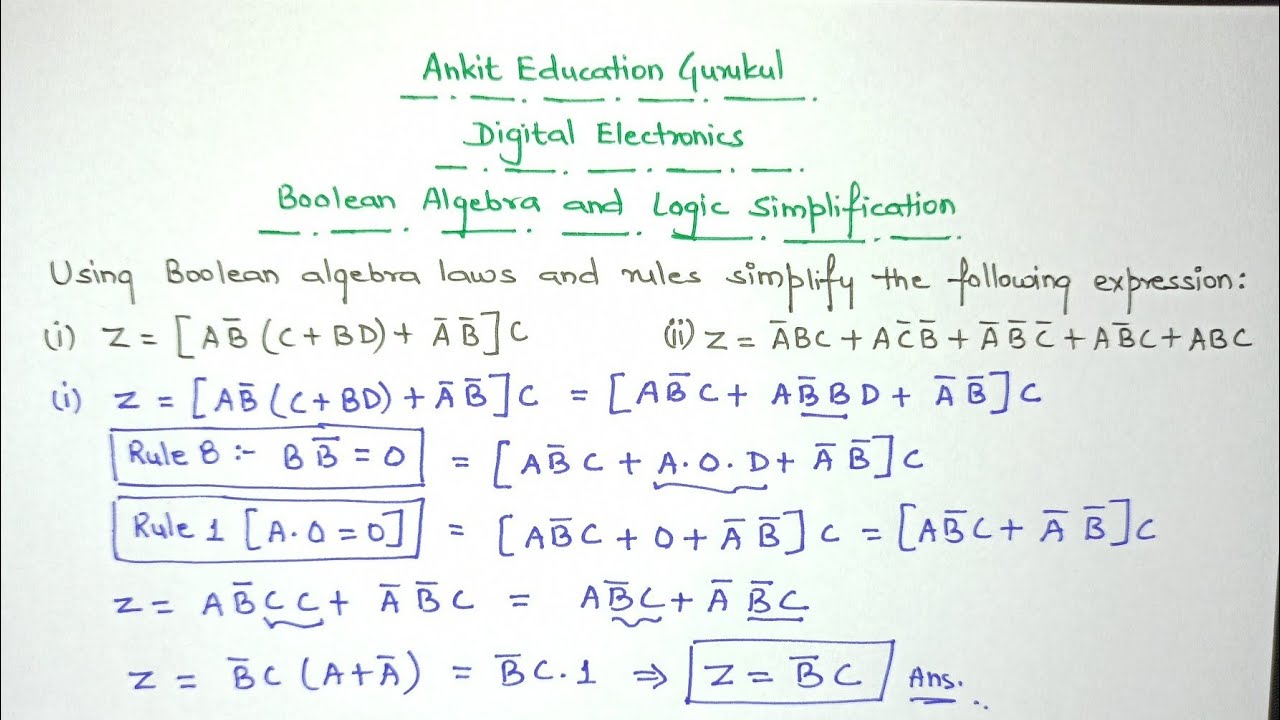 Ankit Education Gurukul
Digital Electronics
Boolean Algebra and Logic Simplification
Using Boolean algebra laws and rules simplify the following expression:
(i) Z = [AB̅(C+BD)+ A̅B̅]C (ii) Z = A̅BC + AC̅B̅ + A̅B̅C̅ + AB̅C + ABC
(i) Z = [AB̅(C+BD)+A̅B̅]C = [AB̅C + AB̅BD + A̅B̅]C
Rule 8 :- BB̅ = 0 = [AB̅C + A.0.D + A̅B̅]C
Rule 1 [A.0 = 0] = [AB̅C + 0 + A̅B̅]C = [AB̅C + A̅B̅]C
Z = AB̅CC + A̅B̅C = AB̅C + A̅B̅C
Z = B̅C(A+A̅) = B̅C.1 ⇒ Z = B̅C Ans.